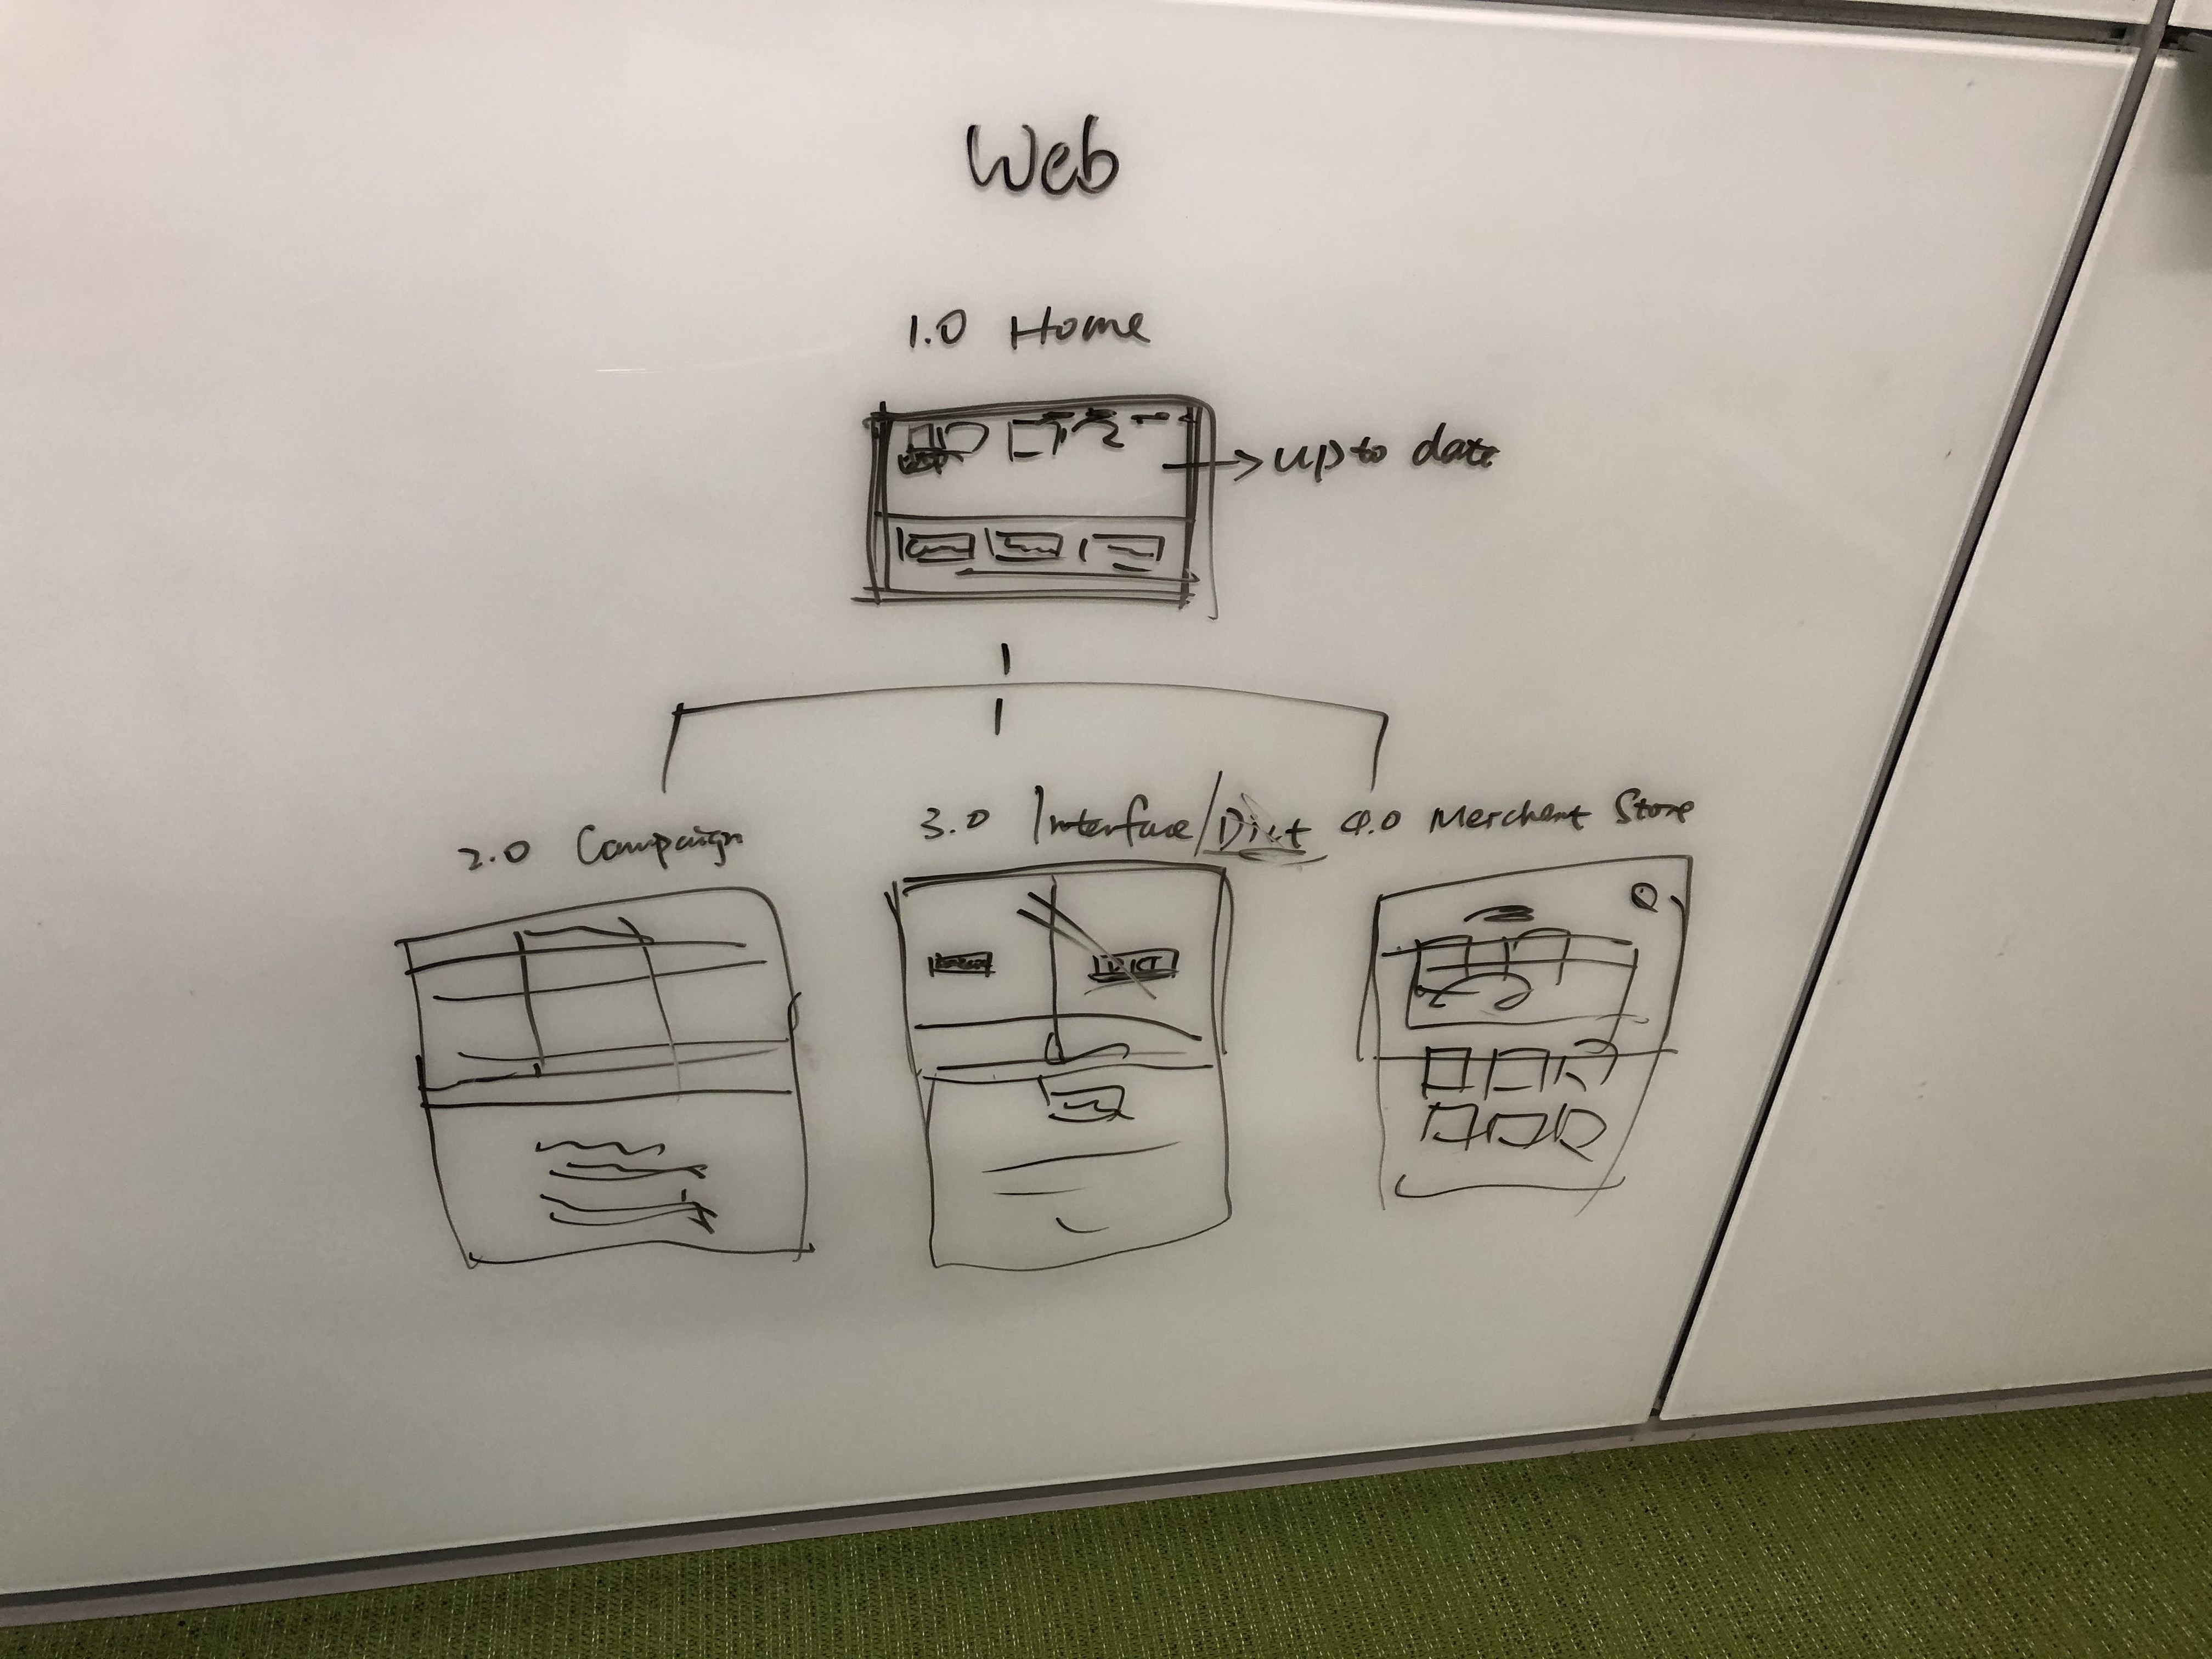 Web
1.0 Home
→ up to date
2.0 Campaign
3.0 Interface/Dict
4.0 Merchent Store
DICT